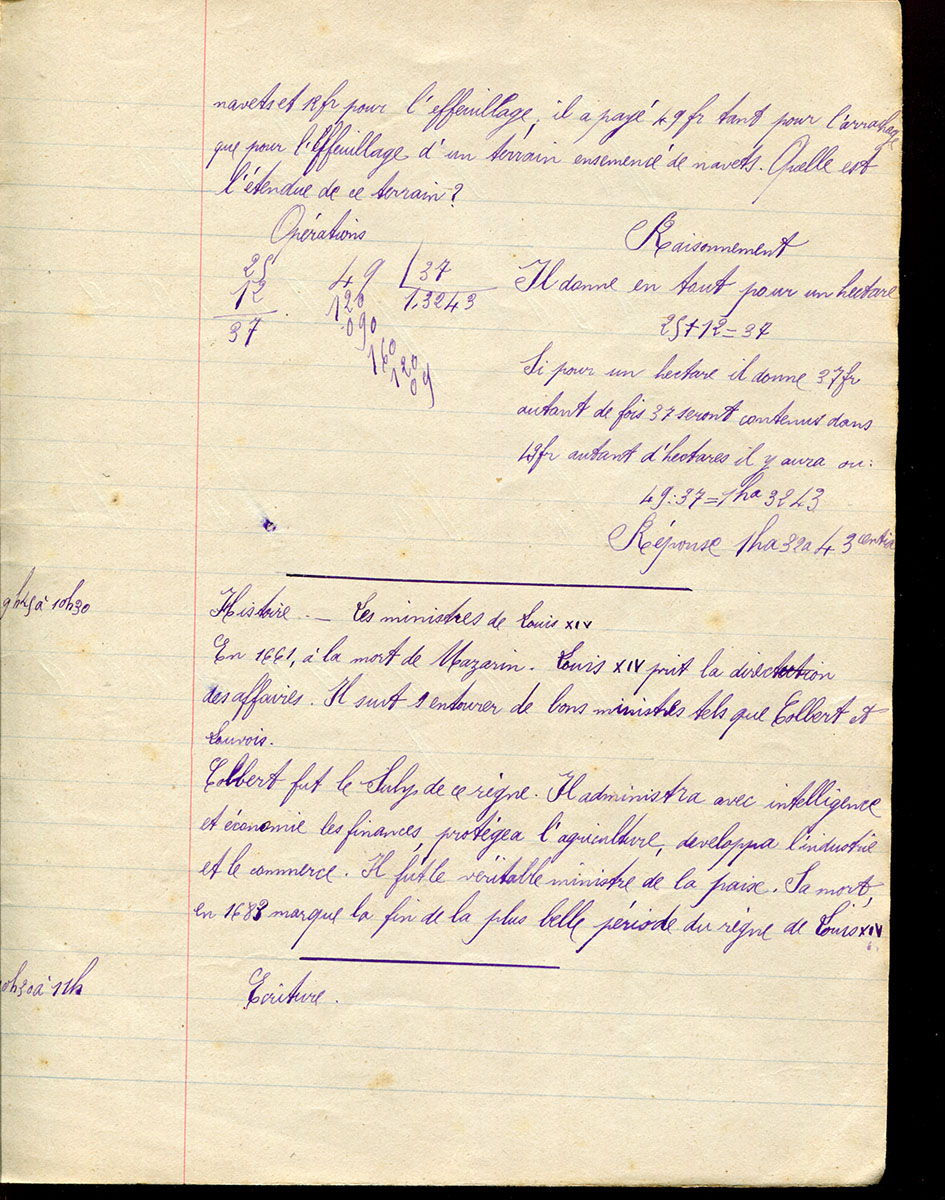 navets et 12 fr pour l'effeuillage, il a payé 49 fr tant pour l'arrachage
que pour l'effeuillage d'un terrain ensemencé de navets. Quelle est
l'étendue de ce terrain?
Opérations
Raisonnement
25
12
37
49 37
120 1,3243
090
160
120
09
Il donne en tout pour un hectare
25+12=37
Si pour un hectare il donne 37 fr
autant de fois 37 seront contenus dans
49 fr autant d'hectares il y aura ou:
49:37=1ha3243
Réponse 1ha 32a 43 centia
9h45 à 10h30
Histoire. — Les ministres de Louis XIV
En 1661, à la mort de Mazarin. Louis XIV prit la direction
des affaires. Il suit s'entourer de bons ministres tels que Colbert et
Louvois.
Colbert fut le Suly de ce règne. Il administra avec intelligence
et économie les finances, protégea l'agriculture, developpa l'industrie
et le commerce. Il fut le véritable ministre de la paise. Sa mort,
en 1683 marque la fin de la plus belle période du règne de Louis XIV
10h30 à 11h
Ecriture.